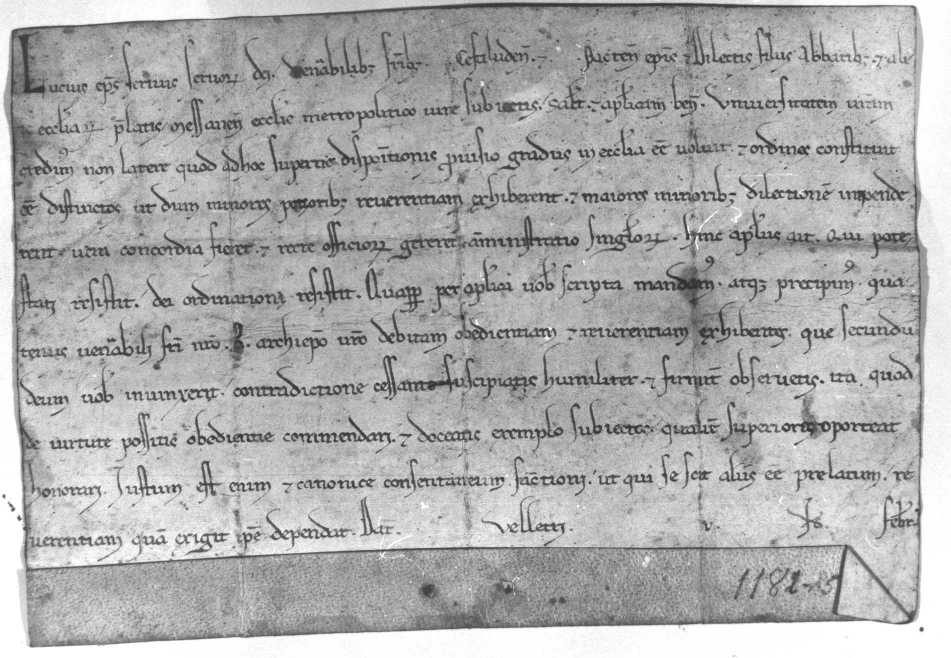 Lucius ep̄s seruus seruoꝝ dei. Venābilib; fr̄ib;. Cefaluden̄. ⁊. Pacten̄ ep̄is ⁊ Dilectis filiis Abbatib; ⁊ aliis
ecclīaꝝ p̄latis Messanen̄ ecclīe metropolitico iure subiectis. salt̄. ⁊ apl̄icam ben̄. Vniuersitatem ur̄am
credim᾽ non latere quod adhoc superne dispositionis prouisio gradus in ecclīa eē uoluit. ⁊ ordines constituit
eē distinctos ut dum minores potiorib; reuerentiam exhiberent. ⁊ maiores minorib; dilectionē impende
rent. uera concordia fieret. ⁊ recte officioꝝ gereret᾽ amministratio singl̄oꝝ. hinc apl̄us ait. Qui pote
stati resistit. dei ordinationi resistit. Quapp̄ per apl̄ica uob̄ scripta mandam᾽. atq; precipim᾽. qua
tenus uenābili fr̄i nr̄o. B. archiep̄o ur̄o debitam obedientiam ⁊ reuerentiam exhibentes. que secundū
deum uob̄ iniunxerit. contradictione cessante suscipiatis humiliter. ⁊ firmit̄ obseruetis. ita quod
de uirtute possitis obedientie commendari. ⁊ doceatis exemplo subiectos. qualit̄ superiores oporteat
honorari. Iustum est enim ⁊ canonice consentaneum sanctioni. ut qui se scit aliis eē prelatum. re
uerentiam quā exigit ip̄e dependat. Dat. Velletri. v. kl̄s. febr̄.
1182-85